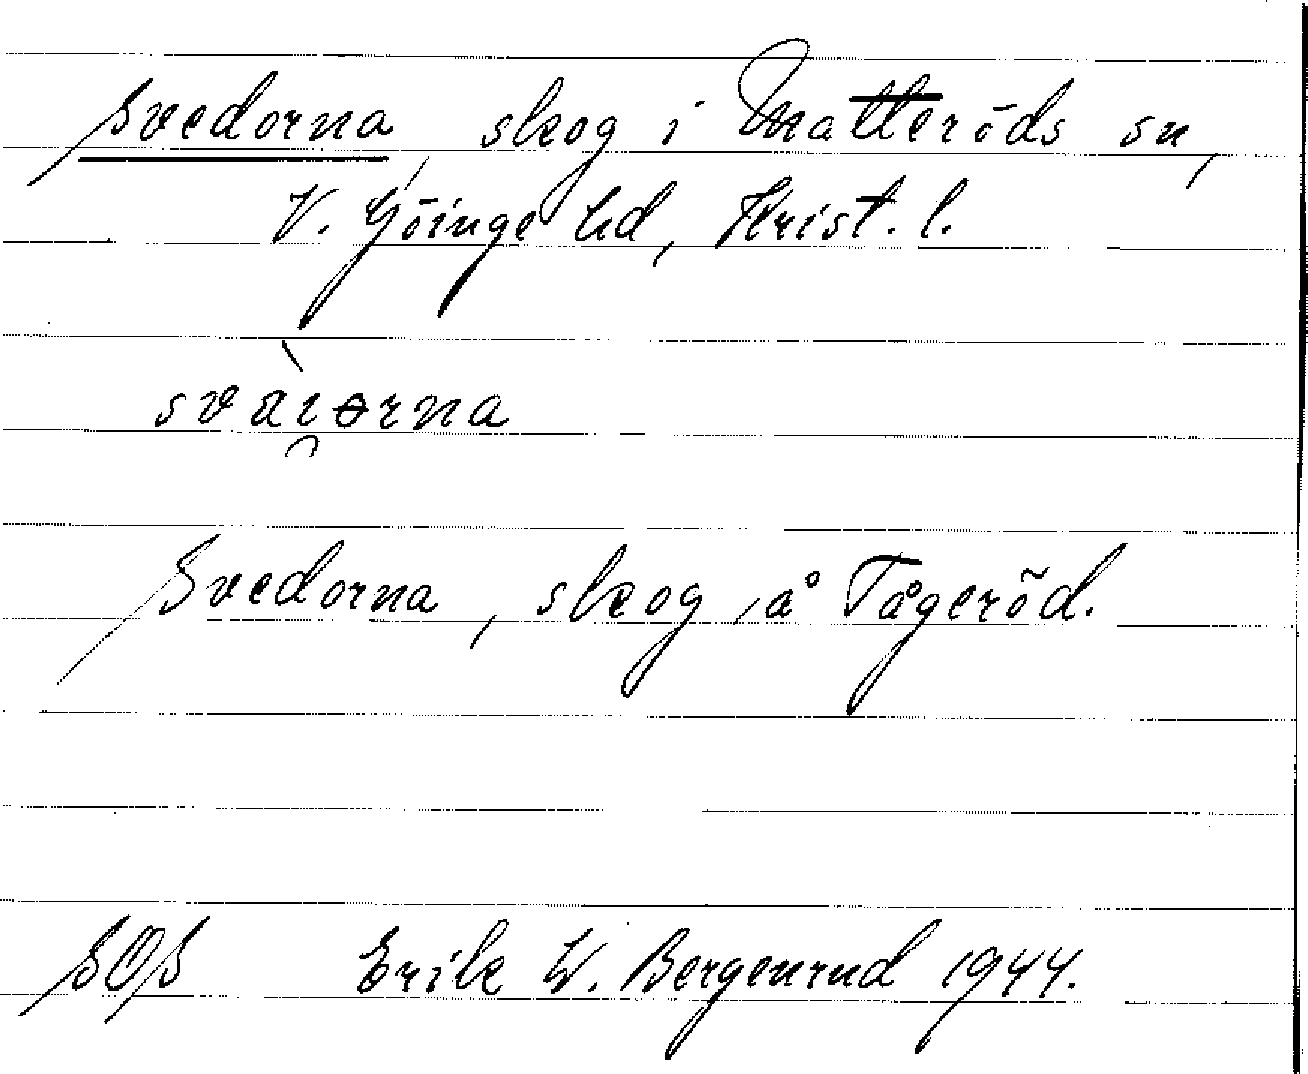 Svedorna, skog i Matteröds sn,
V. Göinge hd, Krist. l.
svàɪ̯ərna
Svedorna, skog å Tågeröd.
SOS Erik W. Bergenrud 1944.